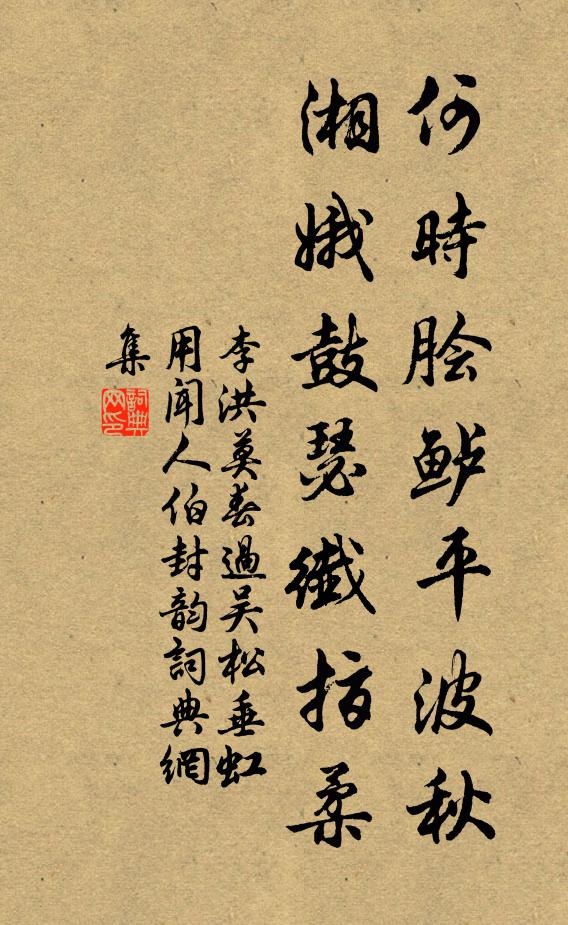 何時脍鲈平波秋
湘娥鼓瑟纖指柔
李洪莫春過吴松垂虹
用闻人伯封韵詞典網
集
詞典
网印